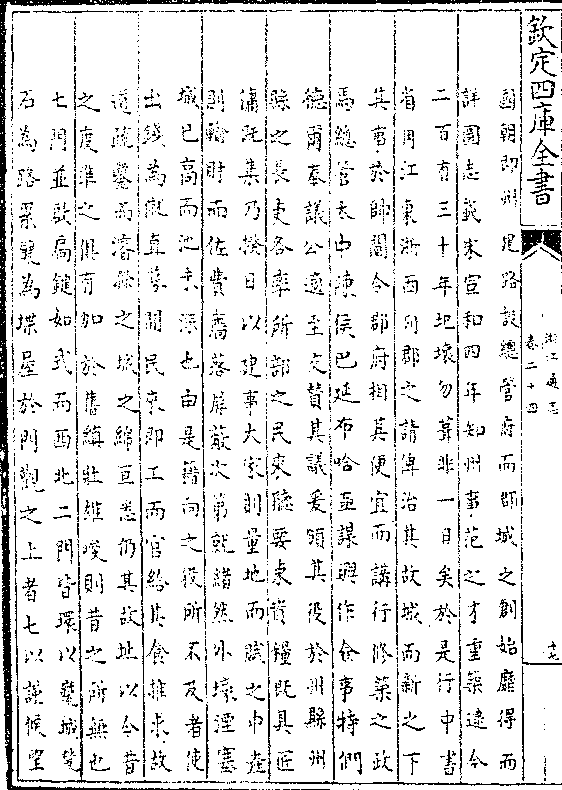 欽定四庫全書
浙江通志
卷二十四
國朝即州建路設總管府而郡城之創始靡得而
詳圖志載宋宣和四年知州事范之才重築逮今
二百有三十年圮壞勿葺非一日矣於是行中書
省用江東浙西列郡之請俾治其故城而新之下
其事於帥閫令郡府相其便宜而講行修築之政
焉總管太中陳侯巴延布哈亟謀興作僉事特們
德爾奉議公適至交贊其議爰頒其役於州縣州
縣之長吏各率所部之民來聽要束資糧既具匠
傭既集乃揆日以建事大家則量地而賦之中產
則輸財而佐費落屏蔽次第就緒然外壕湮塞
城已高而池未深也由是藉向之役所不及者使
出錢為僦直募閒民來即工而官給其食推求故
道疏鑿而濬餘之城之緜亘悉仍其故址以今昔
之度準之俱有加於舊縝壯維峻則昔之所無也
七門並啟扃鍵如式而西北二門皆環以甕城甃
石為路累甓為堞屋於門觀之上者七以謹候望